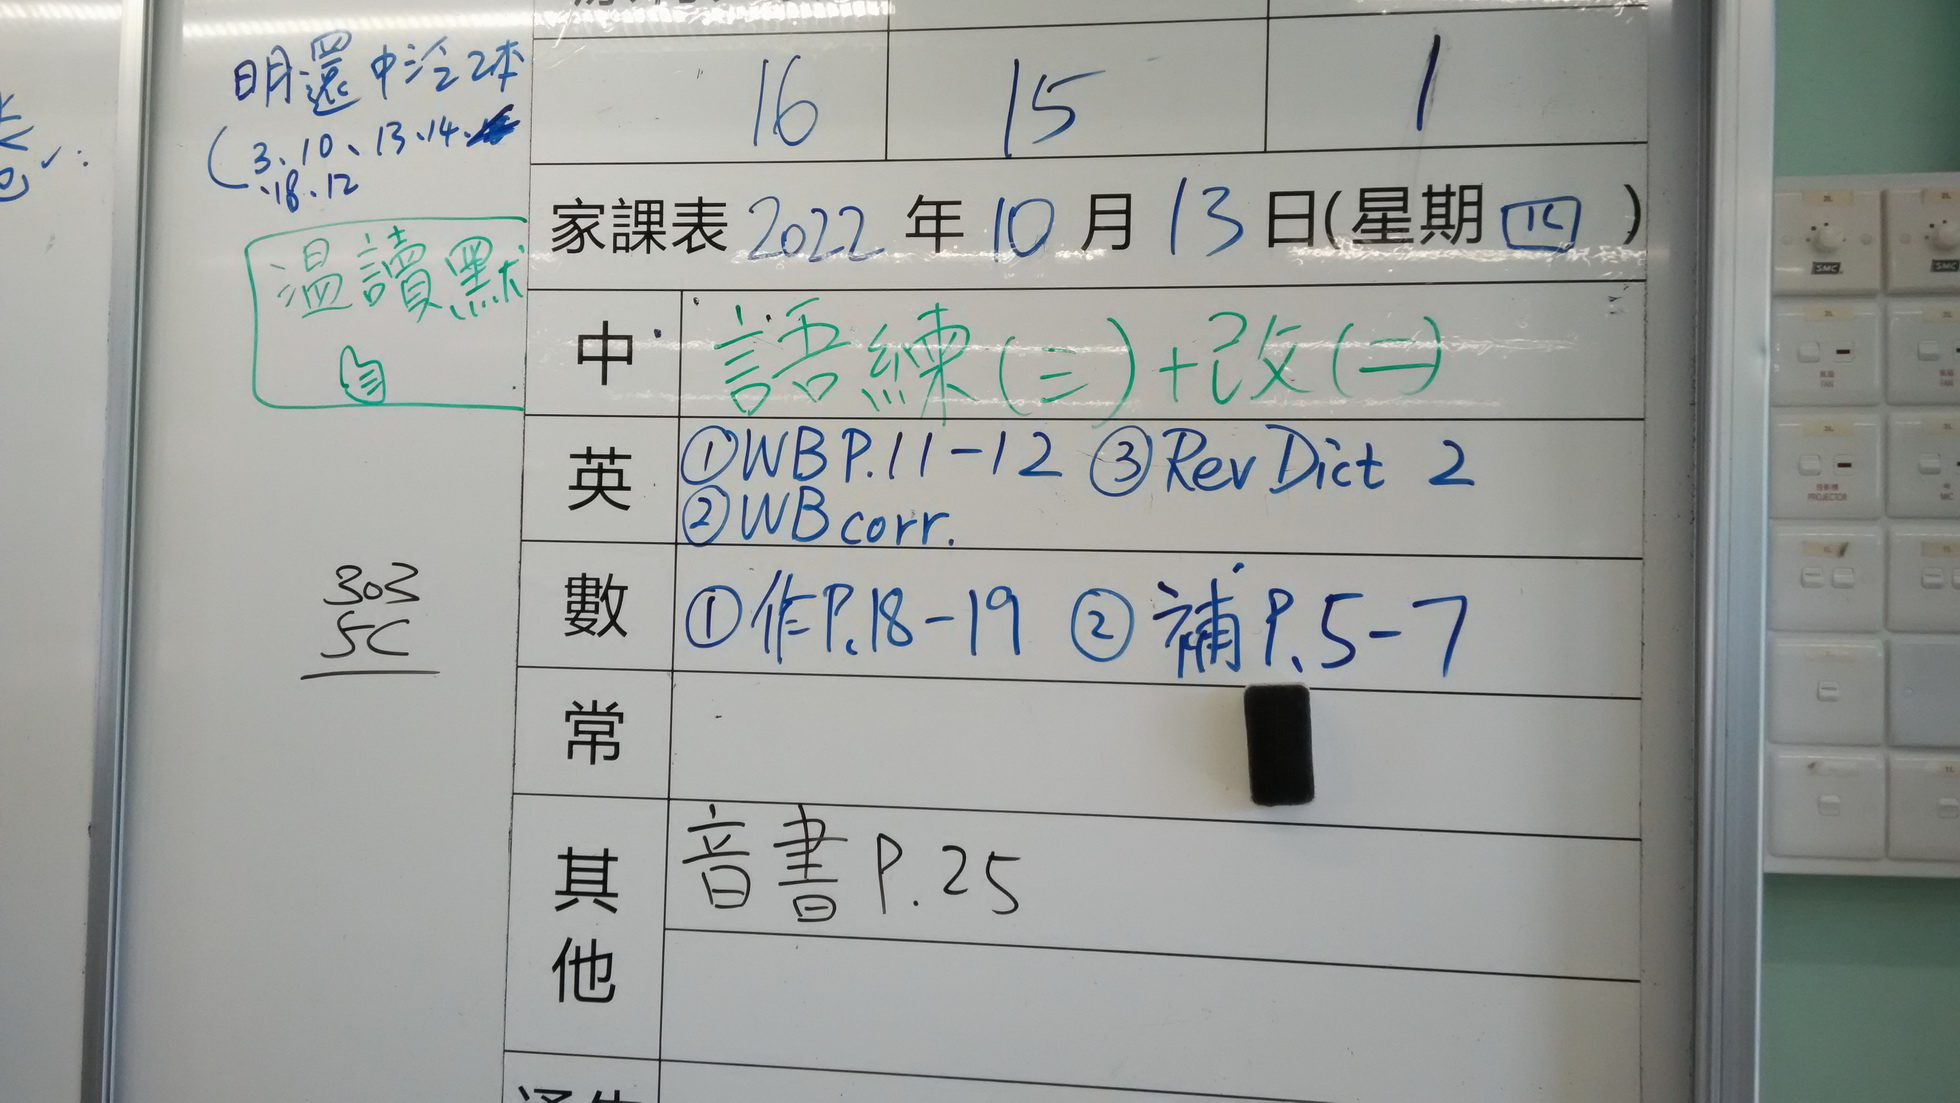 16 15 1
明還中冷2本
(3、10、13、14、
、18、12
家課表 2022 年 10 月 13 日(星期 四 )
溫讀默
中 語練(三)+改(一)
英 ①WB P.11-12 ③Rev Dict 2
②WB corr.
數 ①作P.18-19 ② 補P.5-7
303
5C
常
其他 音書 P.25
SMC
SMC
FAN
FAN
PROJECTOR
MIC